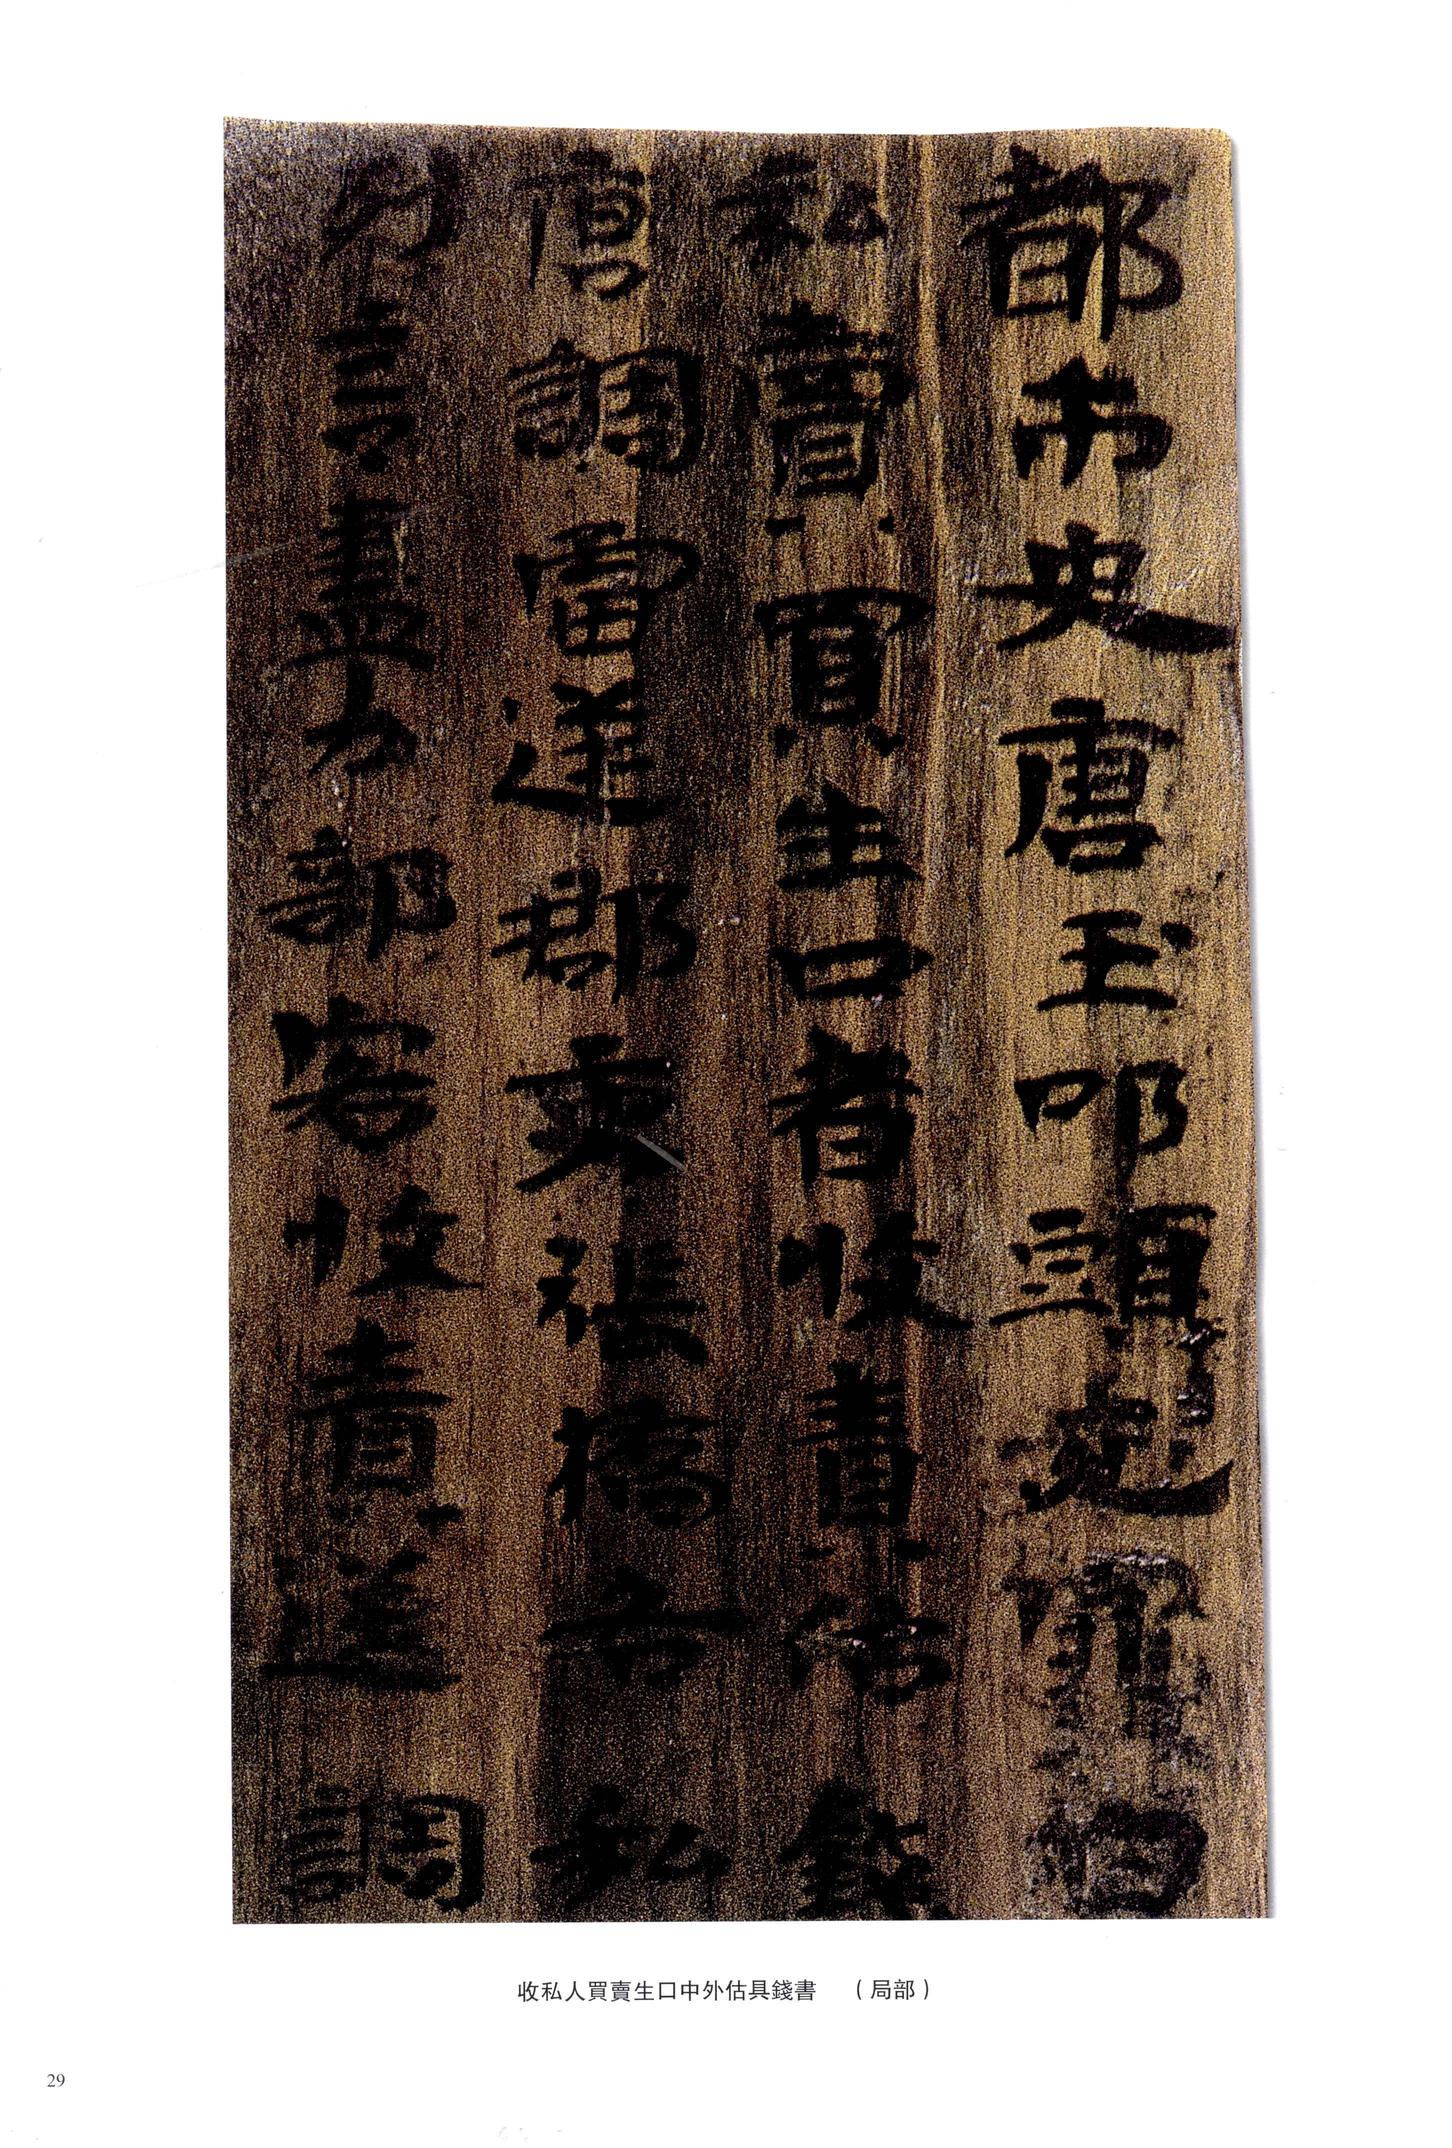 都市史唐玉叩頭死罪白
私賣買生口者收責估錢
唐調雷逆郡吏張橋各私
列言盡力部客收責逆調
收私人買賣生口中外估具錢書 （局部）
29